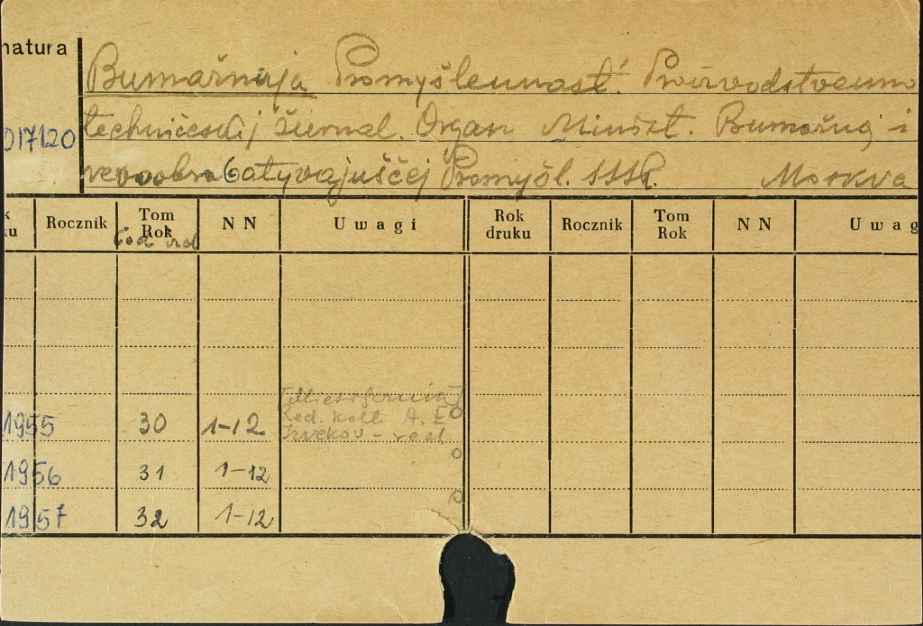 natura
Bumažnaja Promyšlennost'. Proizvodstvenno
017120 techničeskij žurnal. Organ Minist. Bumažnoj i
derevoobrabatyvajuščej Promyšl. SSSR. Moskva
k
ku Rocznik Tom
Rok N N U w a g i Rok
druku Rocznik Tom
Rok N N U w a g
God izd
[Miesięcznik]
Red. koll. A. E.
1955 30 1-12 - red.
1956 31 1-12
1957 32 1-12